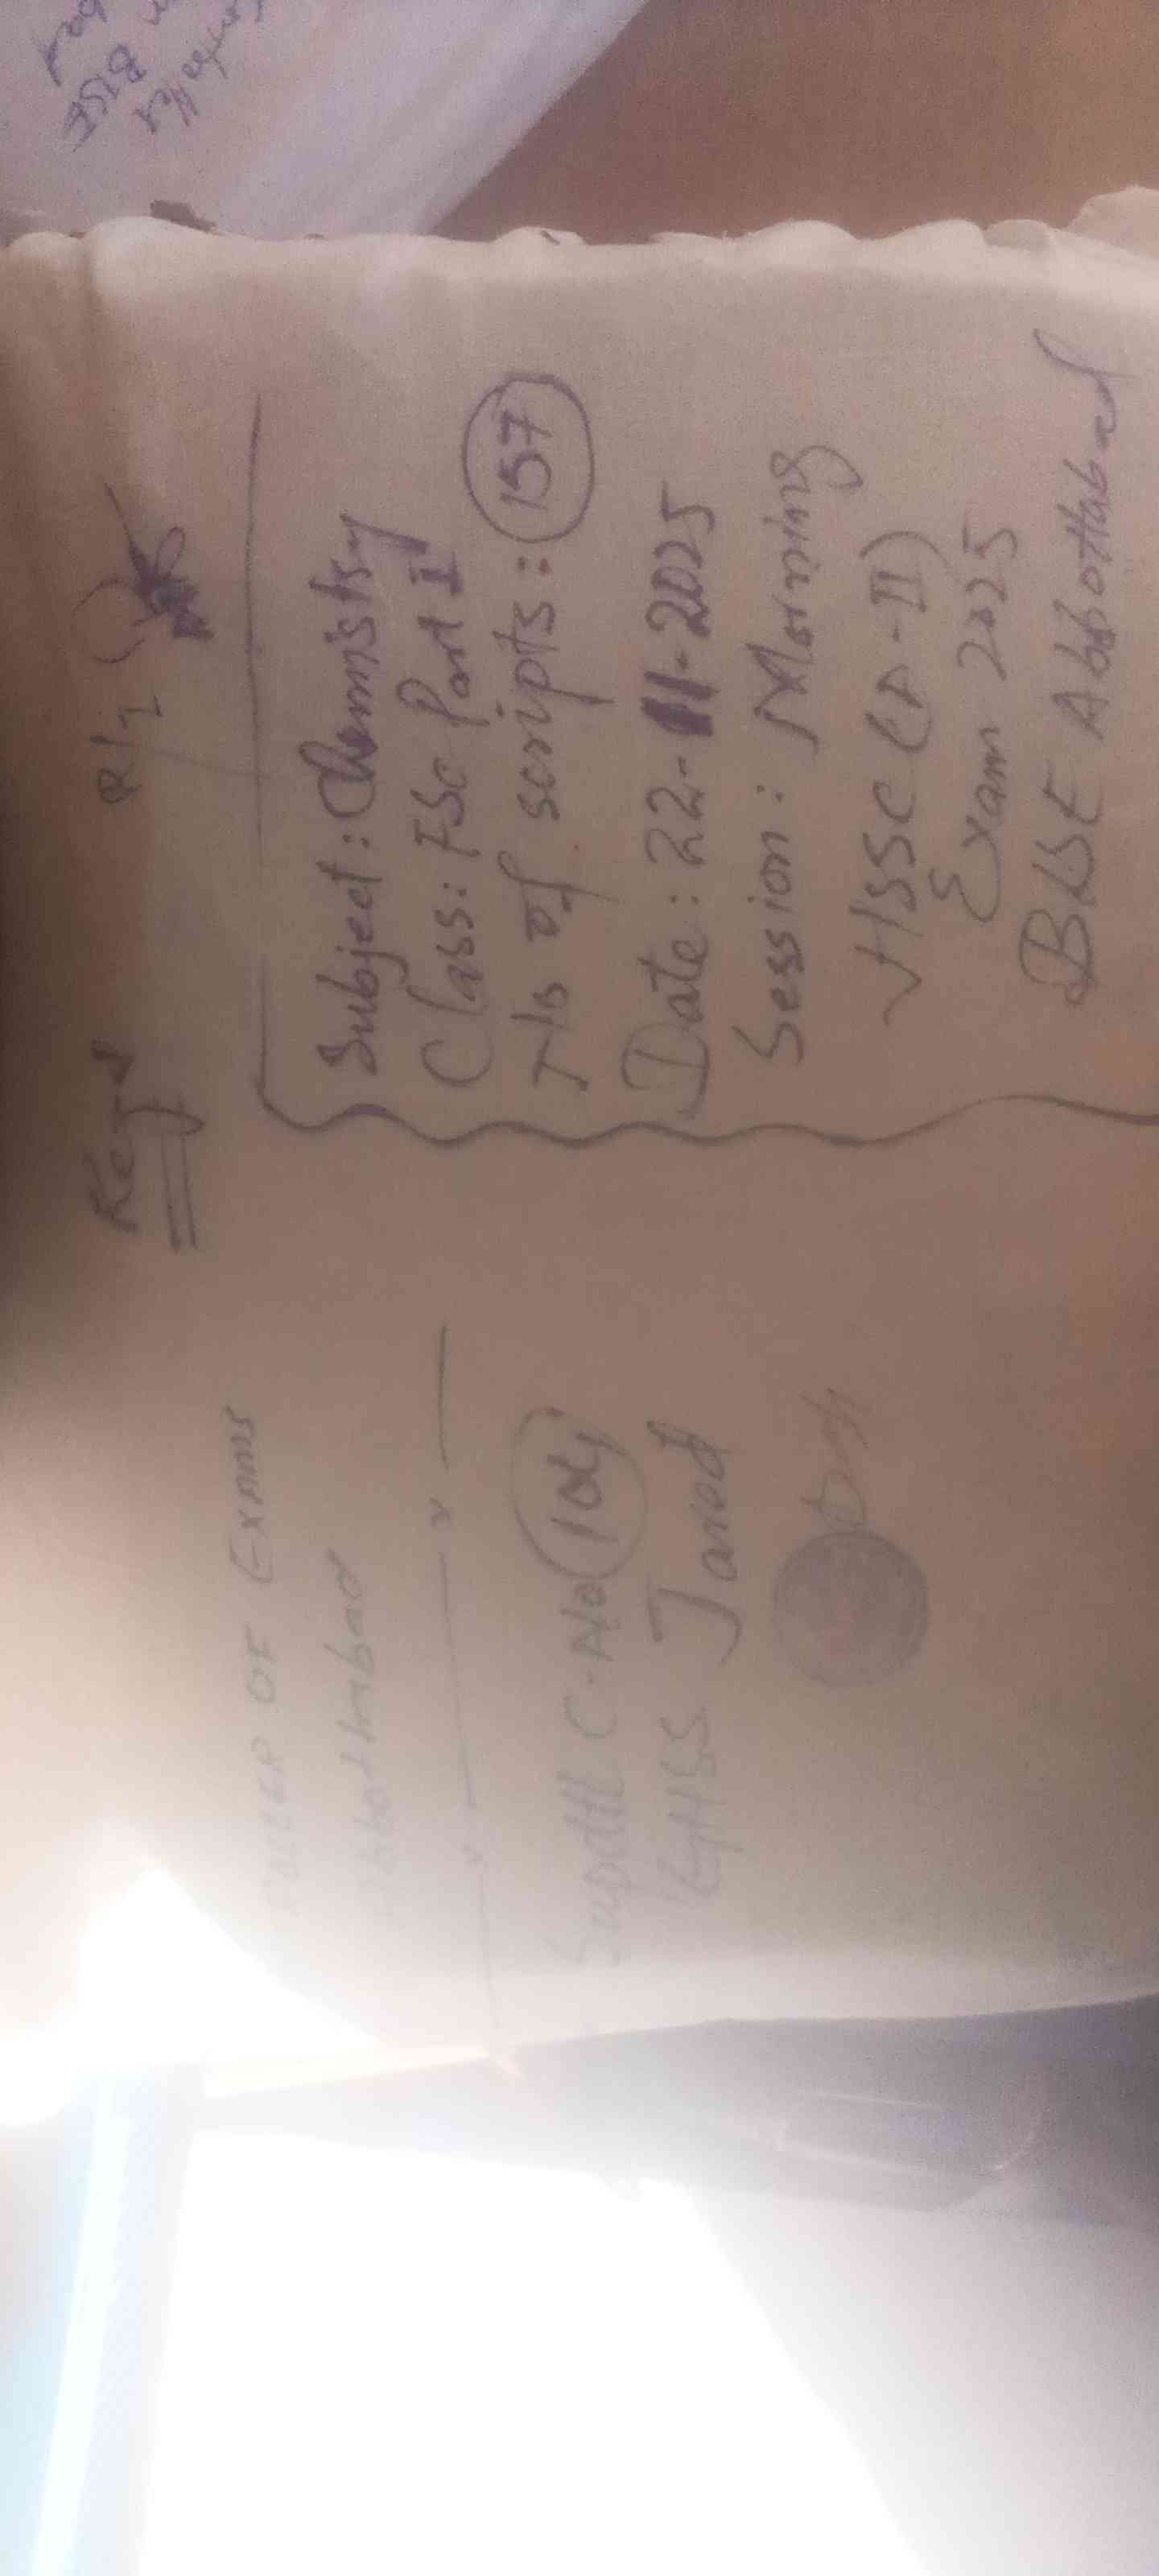 Regd
P/I
Subject: Chemistry
Class: FSc Part I
T/s of scripts: 157
Date: 22-11-2025
Session: Morning
HSSC (A-II)
Exam 2025
BISE Abbottabad
OF EXAMS
Abbottabad
Supdtt C.No 104
GHSS Jared
BISE